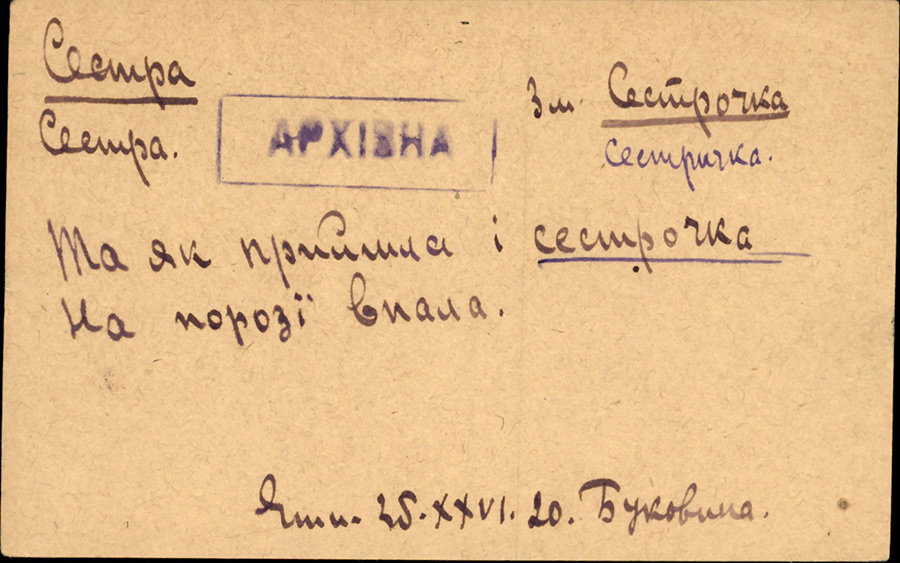 Сестра
Сестра.
АРХІВНА
Зм. Сестрочка
сестричка.
Та як прийшла і сестрочка
На порозї впала.
XXVI. 20. Буковина.